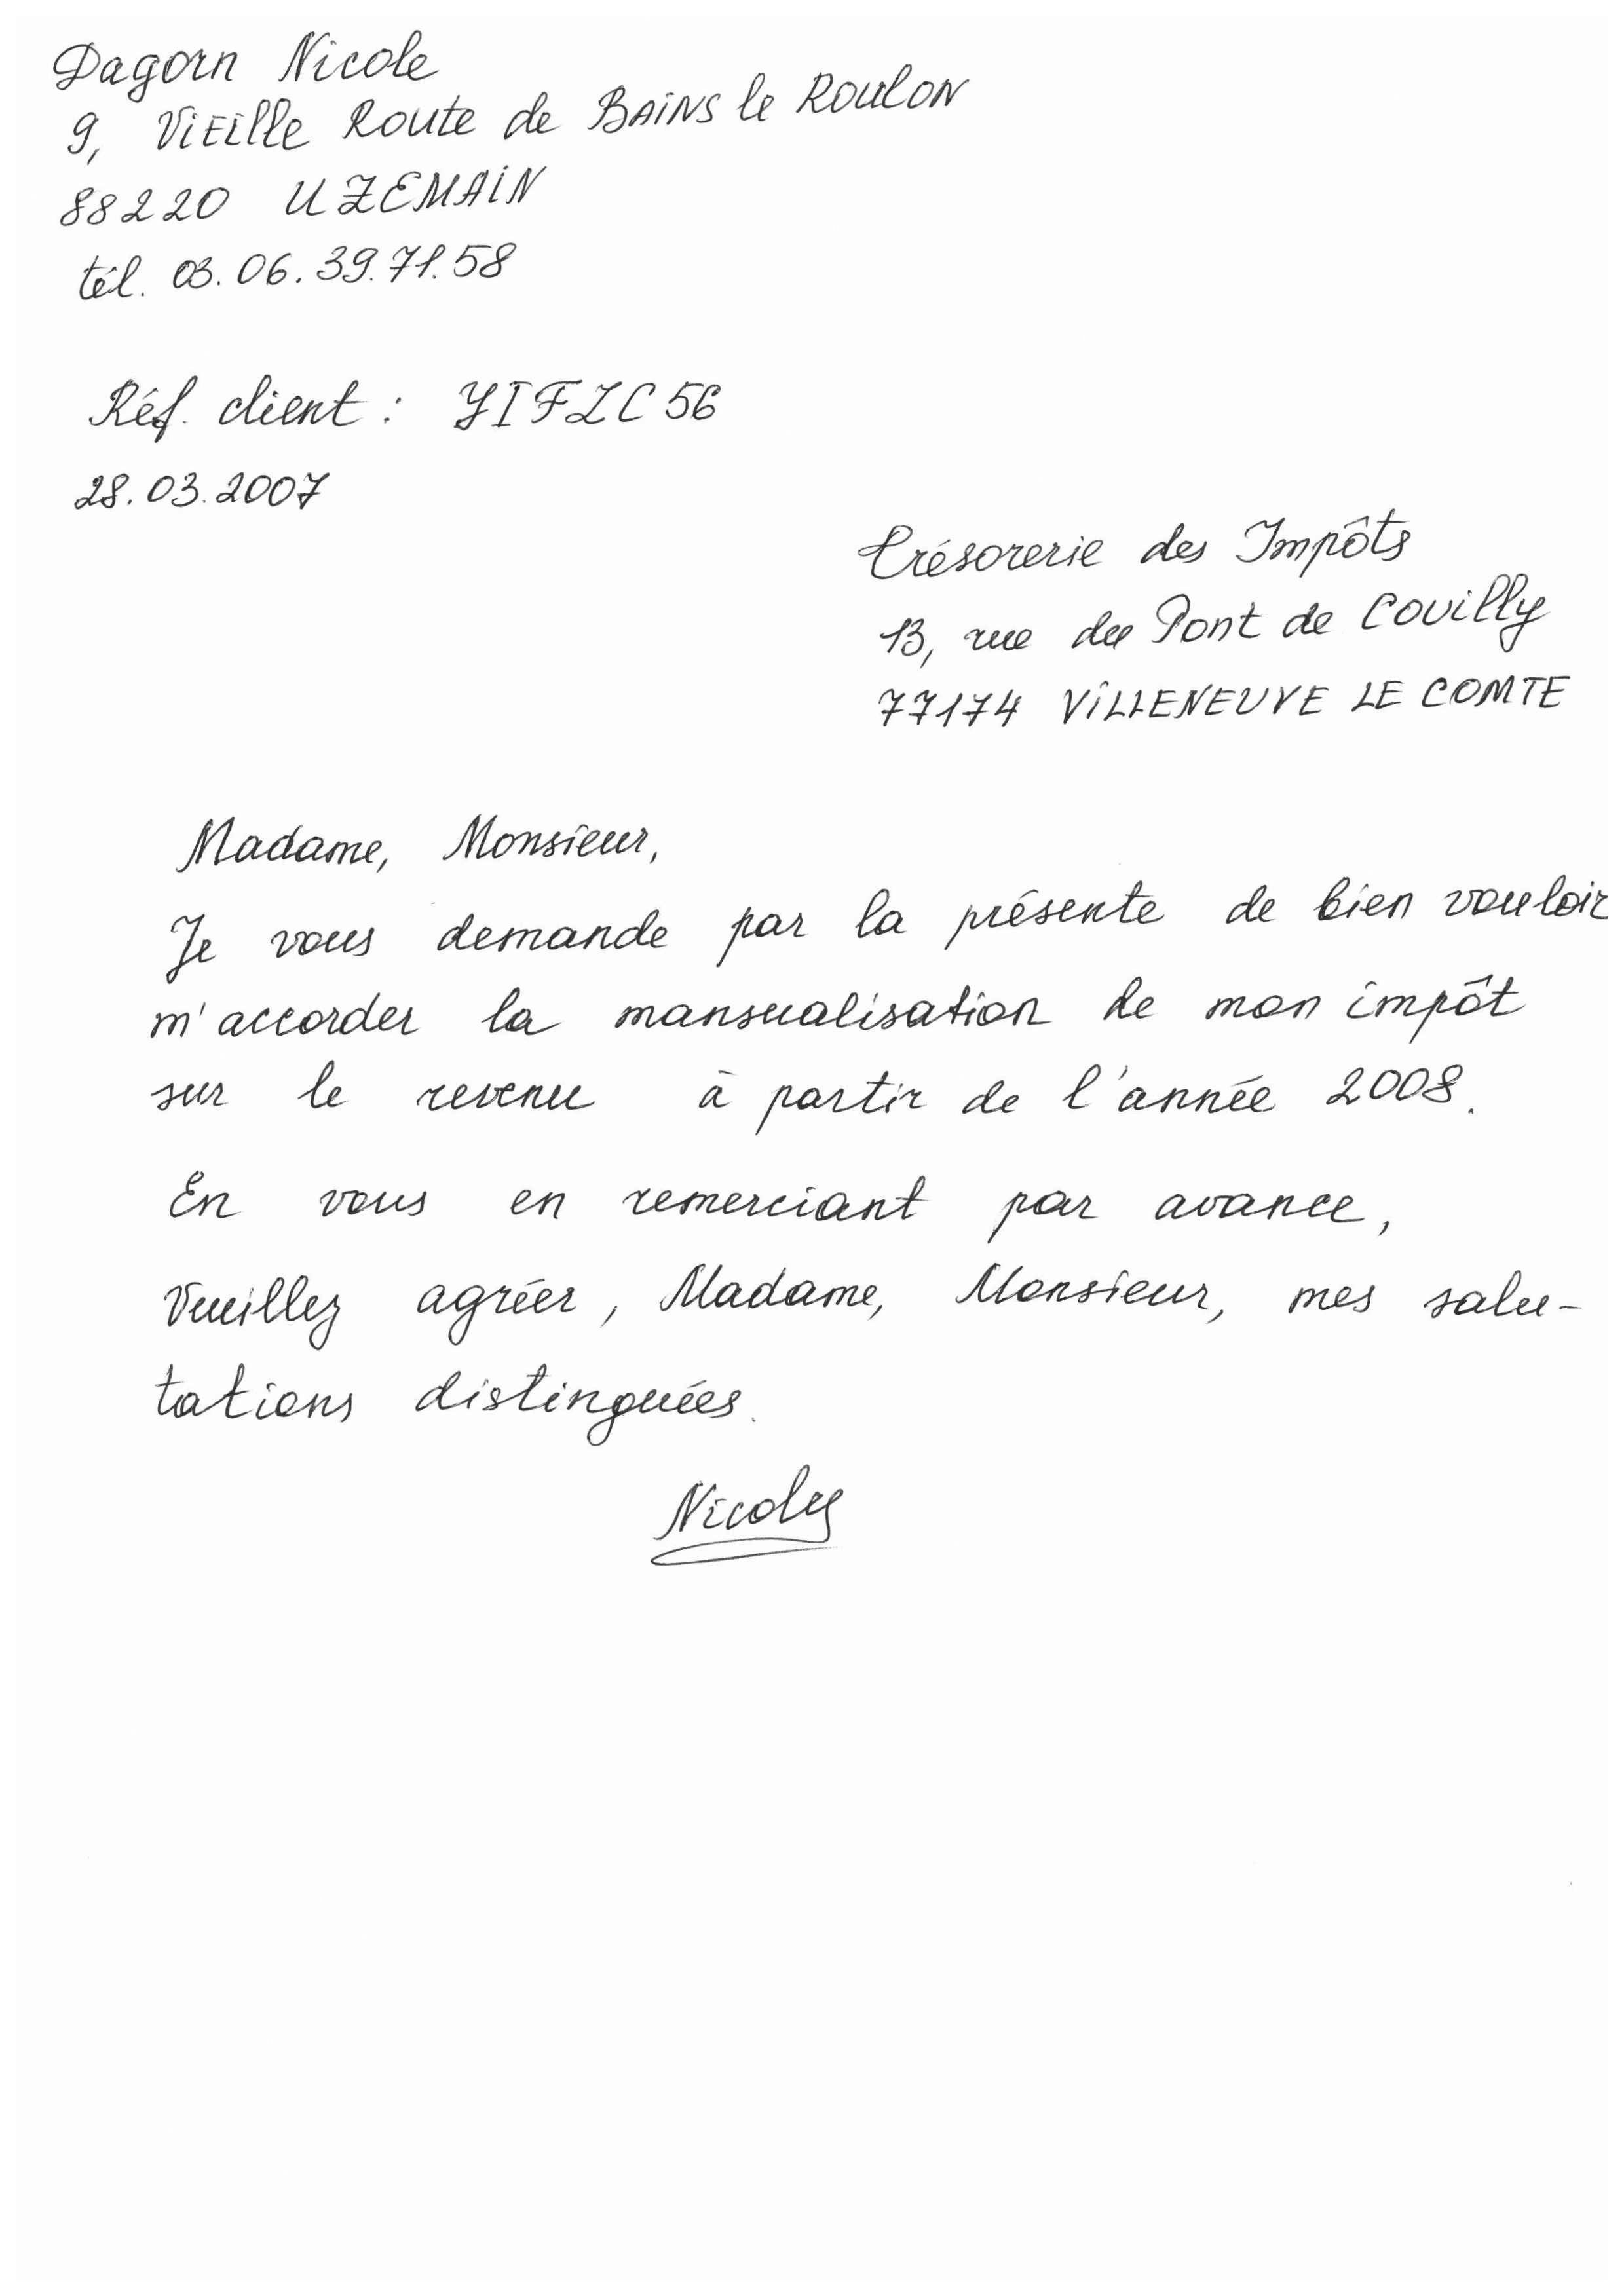 Dagorn Nicole
9, Vieille Route de Bains le Roulon
88220 UZEMAIN
tél. 03.06.39.71.58
Réf. client : YIFZC56
28.03.2007
Trésorerie des Impôts
13, rue du Pont de Couilly
77174 VILLENEUVE LE COMTE
Madame, Monsieur,
Je vous demande par la présente de bien vouloir
m'accorder la mansualisation de mon impôt
sur le revenu à partir de l'année 2008.
En vous en remerciant par avance,
Veuillez agréer, Madame, Monsieur, mes salu-
tations distinguées.